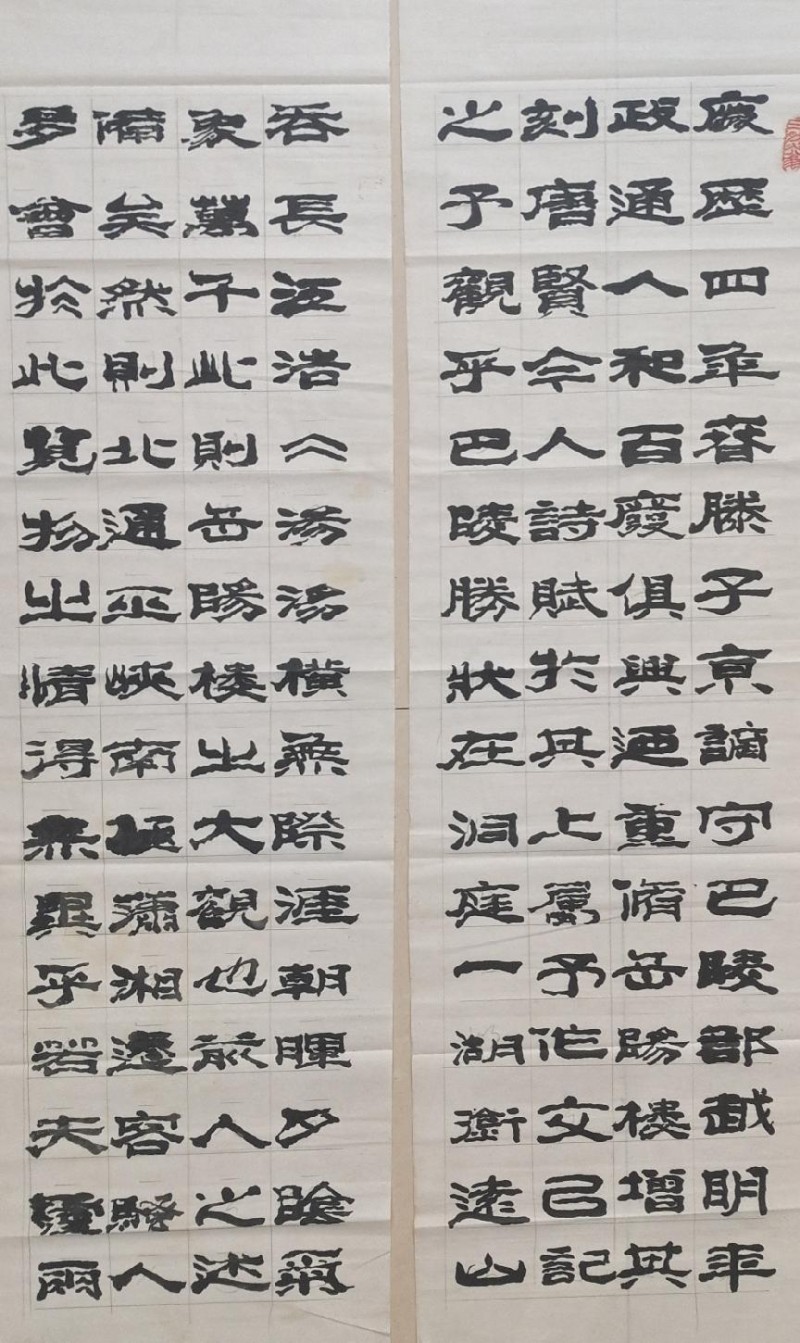 慶歷四年春滕子京謫守巴陵郡越明年
政通人和百廢俱興迺重脩岳陽樓增其
刻唐賢今人詩賦於其上屬予作文以記
之予觀乎巴陵勝狀在洞庭一湖銜遠山
吞長江浩々湯湯橫無際涯朝暉夕陰氣
象萬千此則岳陽樓之大觀也前人之述
備矣然則北通巫峽南極瀟湘遷客騷人
多會於此覽物之情得無異乎若夫霪雨